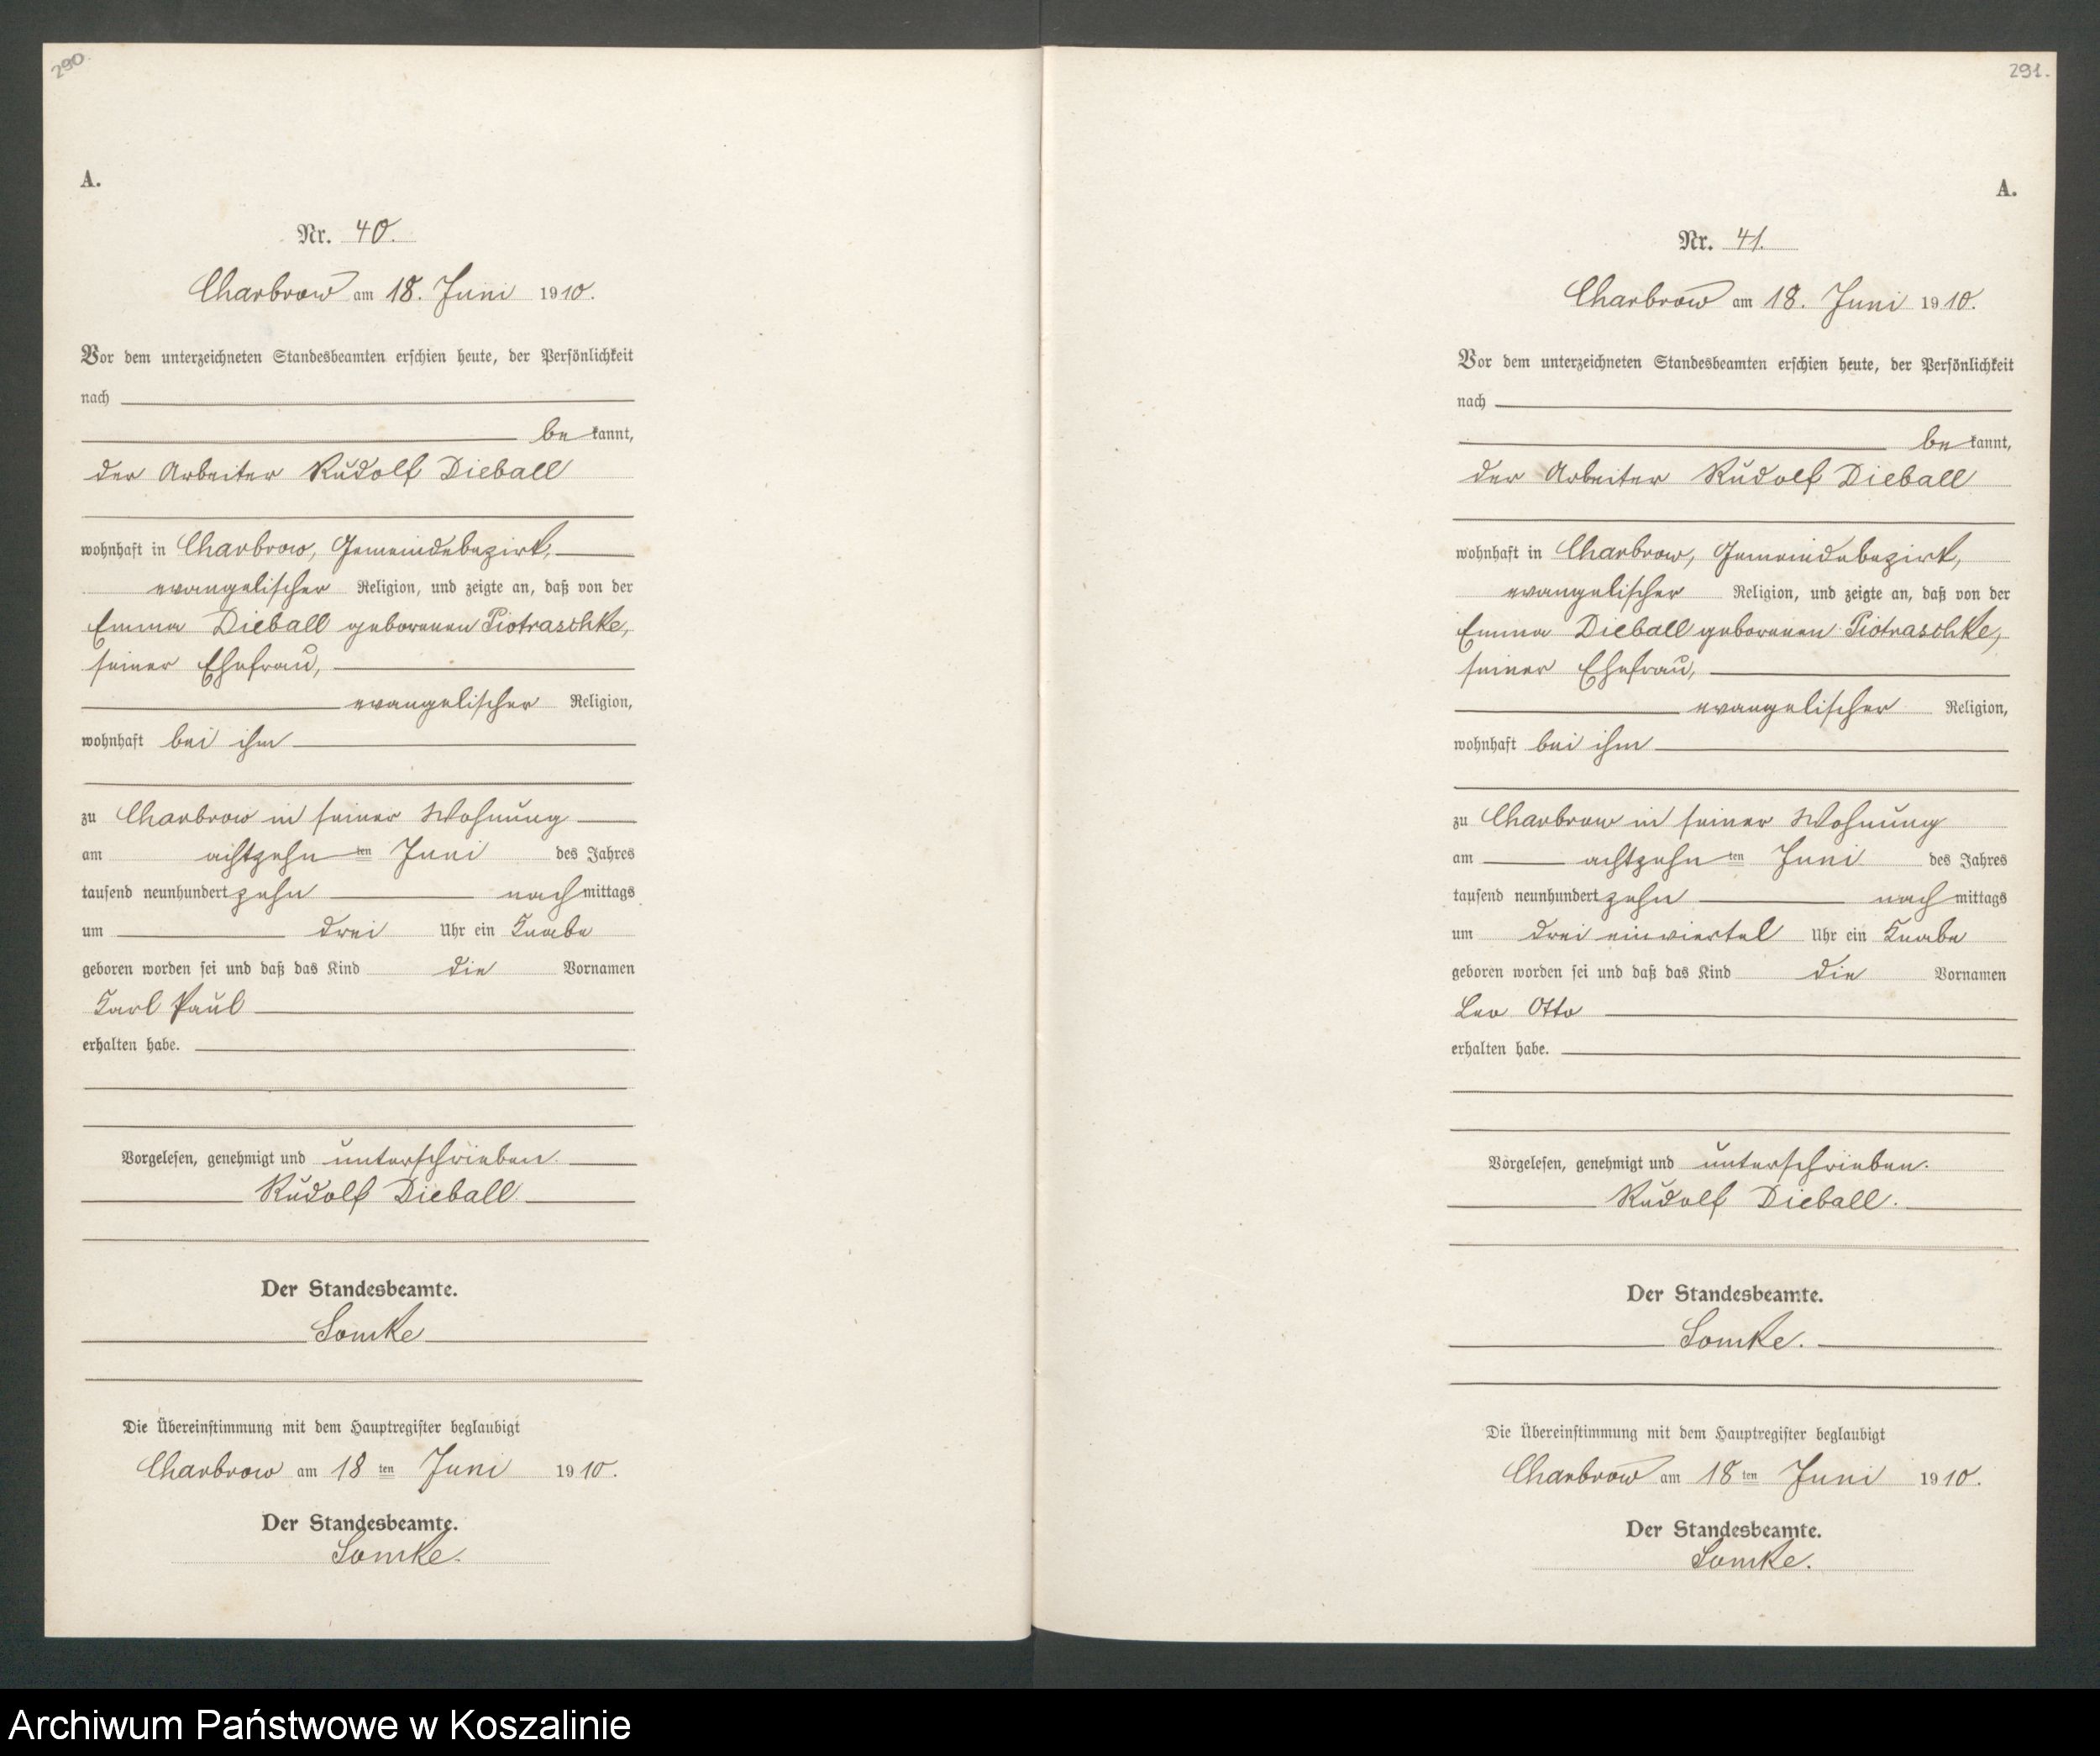 290.
A.
Nr. 40.
Charbrow am 18. Juni 1910.
Vor dem unterzeichneten Standesbeamten erschien heute, der Persönlichkeit
nach
be kannt,
der Arbeiter Rudolf Dieball
wohnhaft in Charbrow, Gemeindebezirk,
evangelischer Religion, und zeigte an, daß von der
Emma Dieball geborenen Piotraschke,
seiner Ehefrau,
evangelischer Religion,
wohnhaft bei ihm
zu Charbrow in seiner Wohnung
am achtzehn ten Juni des Jahres
tausend neunhundert zehn nach mittags
um drei Uhr ein Knabe
geboren worden sei und daß das Kind die Vornamen
Karl Paul
erhalten habe.
Vorgelesen, genehmigt und unterschrieben.
Rudolf Dieball
Der Standesbeamte.
Lomke
Die Übereinstimmung mit dem Hauptregister beglaubigt
Charbrow am 18 ten Juni 1910.
Der Standesbeamte.
Lomke.
291.
A.
Nr. 41.
Charbrow am 18. Juni 1910.
Vor dem unterzeichneten Standesbeamten erschien heute, der Persönlichkeit
nach
be kannt,
der Arbeiter Rudolf Dieball
wohnhaft in Charbrow, Gemeindebezirk,
evangelischer Religion, und zeigte an, daß von der
Emma Dieball geborenen Piotraschke,
seiner Ehefrau,
evangelischer Religion,
wohnhaft bei ihm
zu Charbrow in seiner Wohnung
am achtzehn ten Juni des Jahres
tausend neunhundert zehn nach mittags
um drei einviertel Uhr ein Knabe
geboren worden sei und daß das Kind die Vornamen
Leo Otto
erhalten habe.
Vorgelesen, genehmigt und unterschrieben.
Rudolf Dieball.
Der Standesbeamte.
Lomke.
Die Übereinstimmung mit dem Hauptregister beglaubigt
Charbrow am 18 ten Juni 1910.
Der Standesbeamte.
Lomke.
Archiwum Państwowe w Koszalinie